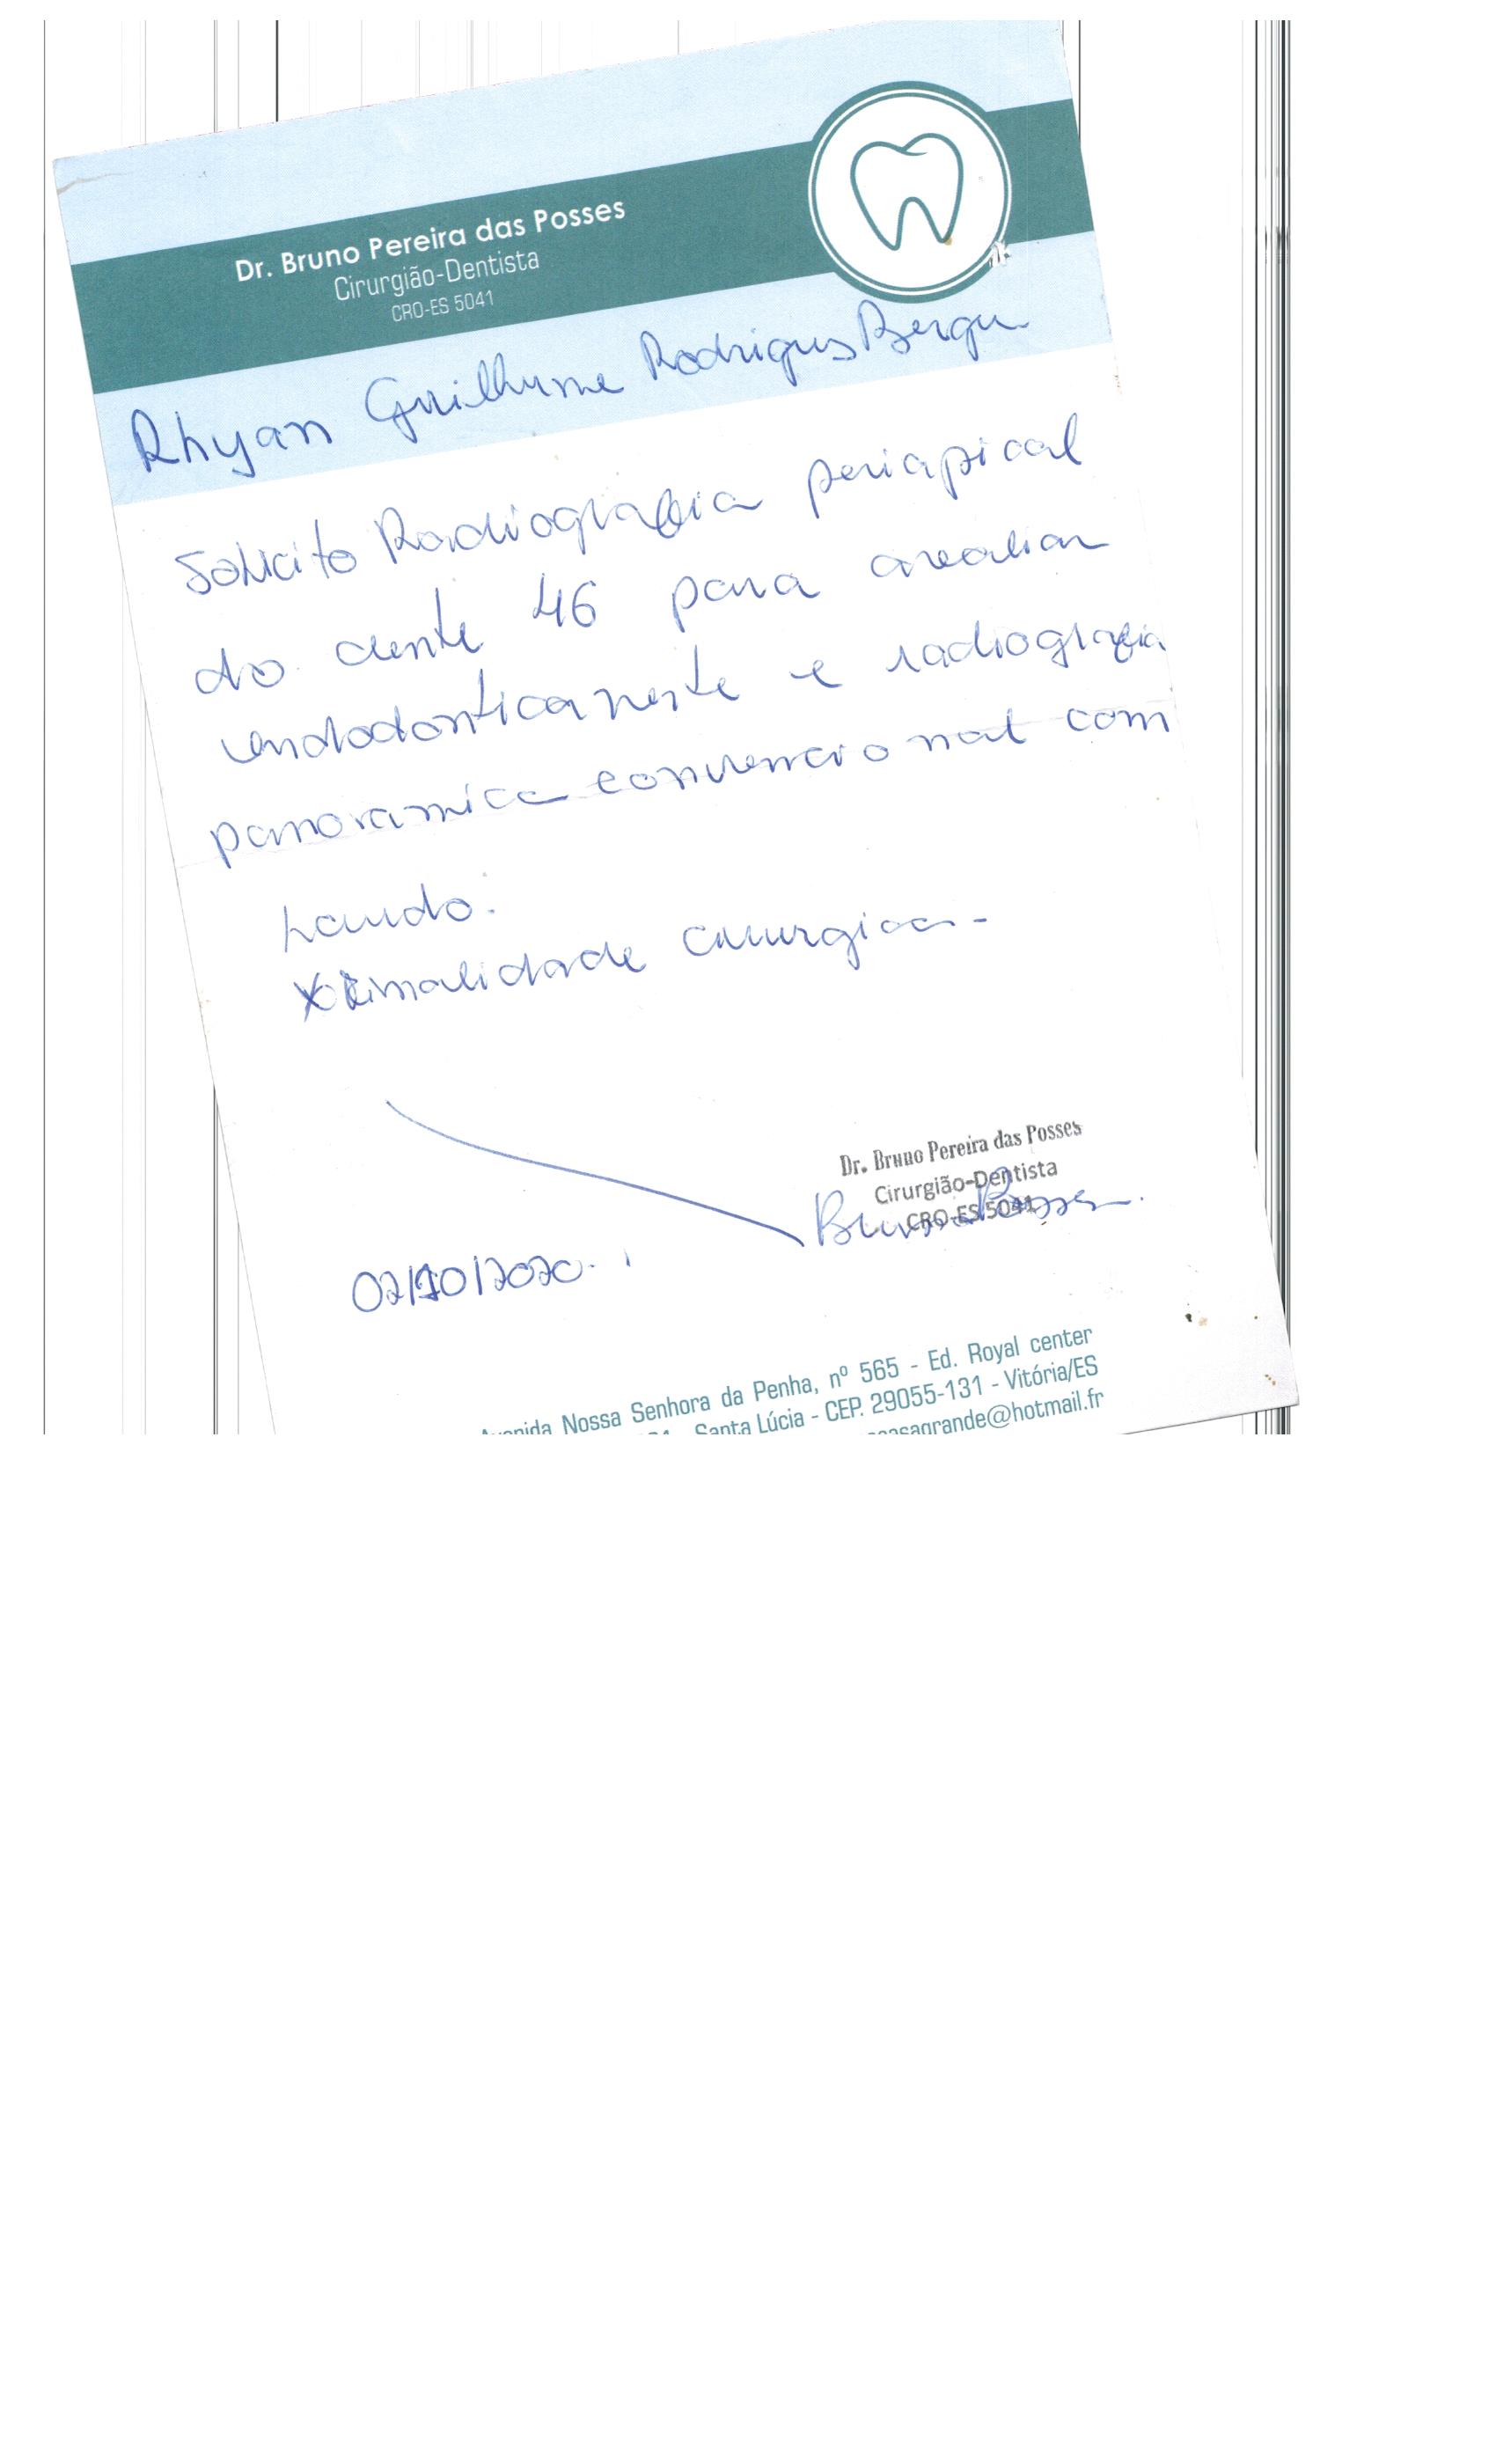 Dr. Bruno Pereira das Posses
Cirurgião-Dentista
CRO-ES 5041
Rhyan Guilherme Rodrigues
Solicito Radiografia periapical
do dente 46 para avaliar
endodonticamente e radiografia
panoramica convencional com
Laudo.
finalidade cirurgica-
Dr. Bruno Pereira das Posses
Cirurgião-Dentista
CRO-ES 5041
Bruno Posses.
02/10/2020.
Avenida Nossa Senhora da Penha, nº 565 - Ed. Royal center
Santa Lúcia - CEP. 29055-131 - Vitória/ES
casagrande@hotmail.fr